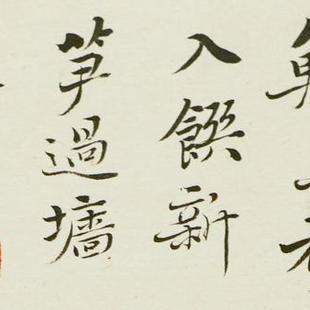 入饌新
笋過墻